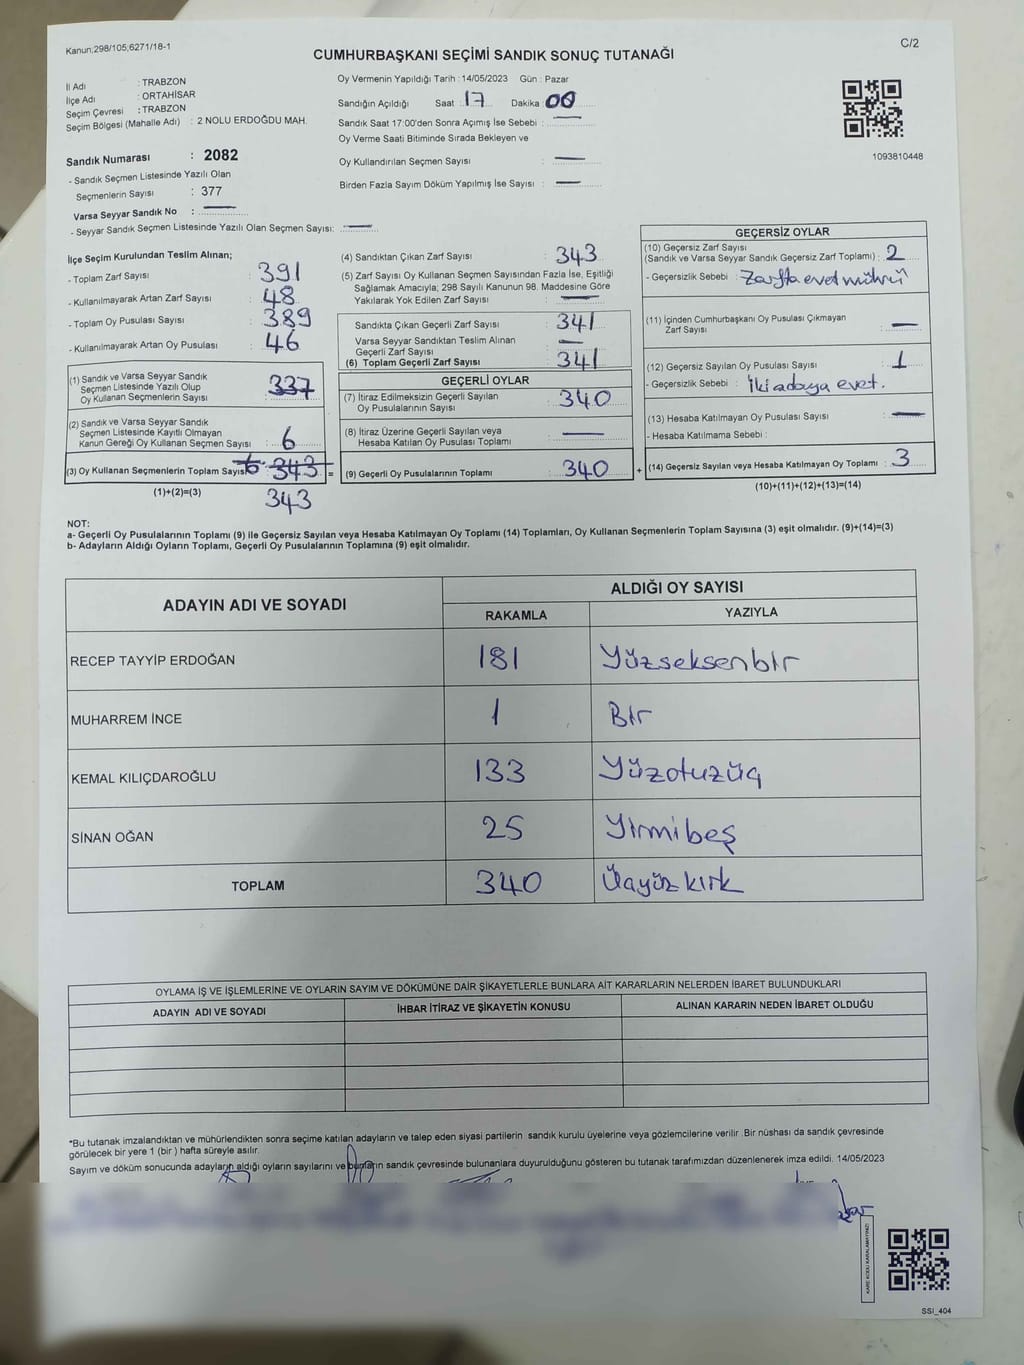 Kanun;298/105;6271/18-1
C/2
CUMHURBAŞKANI SEÇİMİ SANDIK SONUÇ TUTANAĞI
İl Adı : TRABZON
İlçe Adı : ORTAHİSAR
Seçim Çevresi : TRABZON
Seçim Bölgesi (Mahalle Adı) : 2 NOLU ERDOĞDU MAH.
Sandık Numarası : 2082
- Sandık Seçmen Listesinde Yazılı Olan
Seçmenlerin Sayısı : 377
Varsa Seyyar Sandık No :
- Seyyar Sandık Seçmen Listesinde Yazılı Olan Seçmen Sayısı:
Oy Vermenin Yapıldığı Tarih : 14/05/2023 Gün : Pazar
Sandığın Açıldığı Saat : 17 Dakika : 00
Sandık Saat 17:00'den Sonra Açımış İse Sebebi :
Oy Verme Saati Bitiminde Sırada Bekleyen ve
Oy Kullandırılan Seçmen Sayısı :
Birden Fazla Sayım Döküm Yapılmış İse Sayısı :
1093810448
İlçe Seçim Kurulundan Teslim Alınan;
- Toplam Zarf Sayısı : 391
- Kullanılmayarak Artan Zarf Sayısı : 48
- Toplam Oy Pusulası Sayısı : 389
- Kullanılmayarak Artan Oy Pusulası : 46
(1) Sandık ve Varsa Seyyar Sandık
Seçmen Listesinde Yazılı Olup
Oy Kullanan Seçmenlerin Sayısı : 337
(2) Sandık ve Varsa Seyyar Sandık
Seçmen Listesinde Kayıtlı Olmayan
Kanun Gereği Oy Kullanan Seçmen Sayısı : 6
(3) Oy Kullanan Seçmenlerin Toplam Sayısı 6 343 =
(1)+(2)=(3) 343
(4) Sandıktan Çıkan Zarf Sayısı : 343
(5) Zarf Sayısı Oy Kullanan Seçmen Sayısından Fazla İse, Eşitliği
Sağlamak Amacıyla; 298 Sayılı Kanunun 98. Maddesine Göre
Yakılarak Yok Edilen Zarf Sayısı :
Sandıkta Çıkan Geçerli Zarf Sayısı : 341
Varsa Seyyar Sandıktan Teslim Alınan
Geçerli Zarf Sayısı :
(6) Toplam Geçerli Zarf Sayısı : 341
GEÇERLİ OYLAR
(7) İtiraz Edilmeksizin Geçerli Sayılan
Oy Pusulalarının Sayısı : 340
(8) İtiraz Üzerine Geçerli Sayılan veya
Hesaba Katılan Oy Pusulası Toplamı :
(9) Geçerli Oy Pusulalarının Toplamı : 340 +
GEÇERSİZ OYLAR
(10) Geçersiz Zarf Sayısı
(Sandık ve Varsa Seyyar Sandık Geçersiz Zarf Toplamı) : 2
- Geçersizlik Sebebi : Zarfta evet mührü
(11) İçinden Cumhurbaşkanı Oy Pusulası Çıkmayan
Zarf Sayısı :
(12) Geçersiz Sayılan Oy Pusulası Sayısı : 1
- Geçersizlik Sebebi : İki adaya evet.
(13) Hesaba Katılmayan Oy Pusulası Sayısı :
- Hesaba Katılmama Sebebi :
(14) Geçersiz Sayılan veya Hesaba Katılmayan Oy Toplamı : 3
(10)+(11)+(12)+(13)=(14)
NOT:
a- Geçerli Oy Pusulalarının Toplamı (9) ile Geçersiz Sayılan veya Hesaba Katılmayan Oy Toplamı (14) Toplamları, Oy Kullanan Seçmenlerin Toplam Sayısına (3) eşit olmalıdır. (9)+(14)=(3)
b- Adayların Aldığı Oyların Toplamı, Geçerli Oy Pusulalarının Toplamına (9) eşit olmalıdır.
ADAYIN ADI VE SOYADI ALDIĞI OY SAYISI
RAKAMLA YAZIYLA
RECEP TAYYİP ERDOĞAN 181 Yüzseksenbir
MUHARREM İNCE 1 Bir
KEMAL KILIÇDAROĞLU 133 Yüzotuzüç
SİNAN OĞAN 25 Yirmibeş
TOPLAM 340 Üçyüzkırk
OYLAMA İŞ VE İŞLEMLERİNE VE OYLARIN SAYIM VE DÖKÜMÜNE DAİR ŞİKAYETLERLE BUNLARA AİT KARARLARIN NELERDEN İBARET BULUNDUKLARI
ADAYIN ADI VE SOYADI İHBAR İTİRAZ VE ŞİKAYETİN KONUSU ALINAN KARARIN NEDEN İBARET OLDUĞU
*Bu tutanak imzalandıktan ve mühürlendikten sonra seçime katılan adayların ve talep eden siyasi partilerin sandık kurulu üyelerine veya gözlemcilerine verilir .Bir nüshası da sandık çevresinde
görülecek bir yere 1 (bir ) hafta süreyle asılır.
Sayım ve döküm sonucunda adayların aldığı oyların sayılarını ve bunların sandık çevresinde bulunanlara duyurulduğunu gösteren bu tutanak tarafımızdan düzenlenerek imza edildi. 14/05/2023
KARE KODU KARALAMAYINIZ!
SSI_404